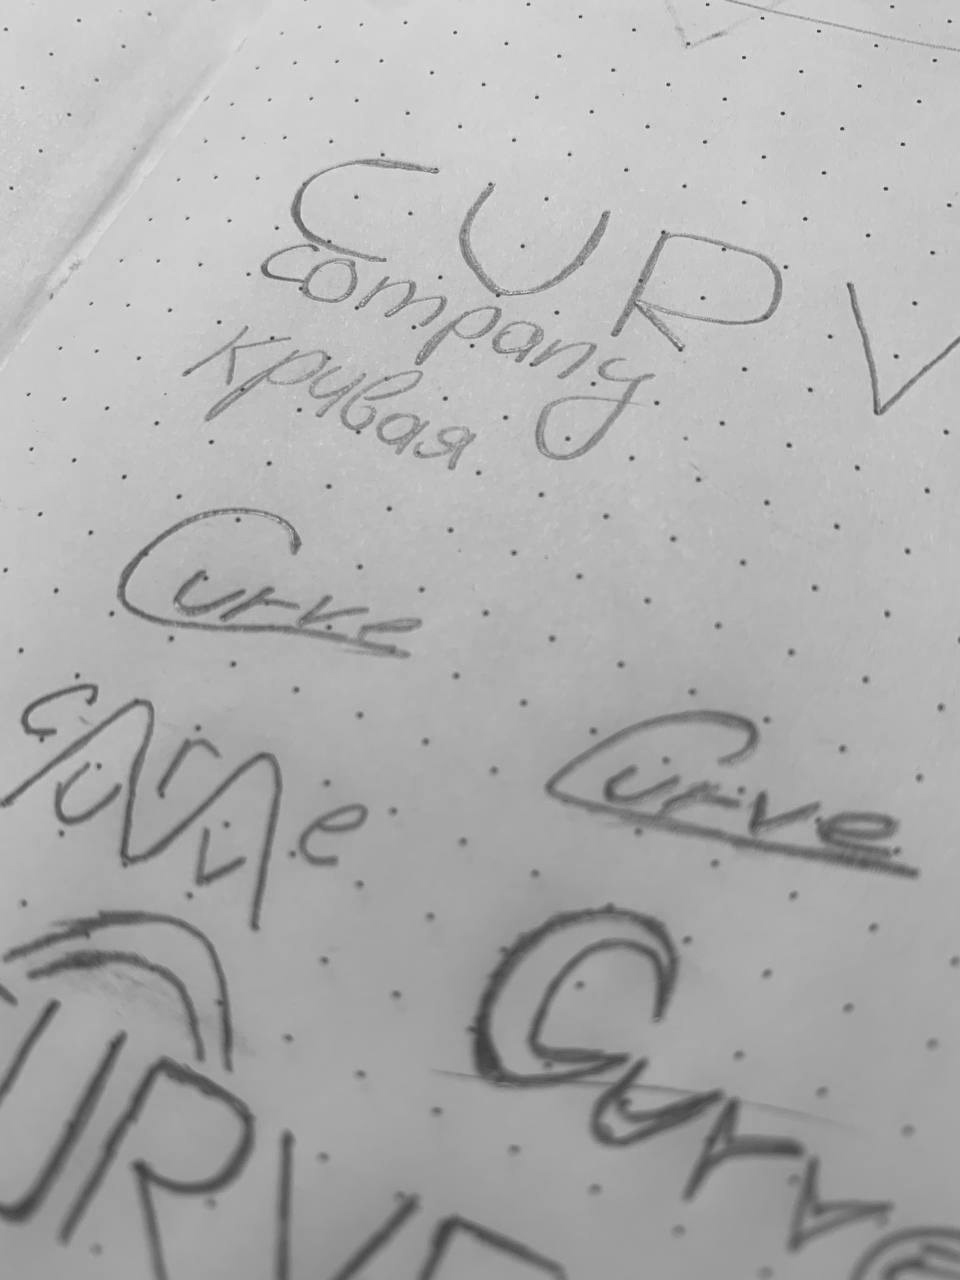 CURV
company
кривая
Curve
Curve
Curve
Curv
URVE